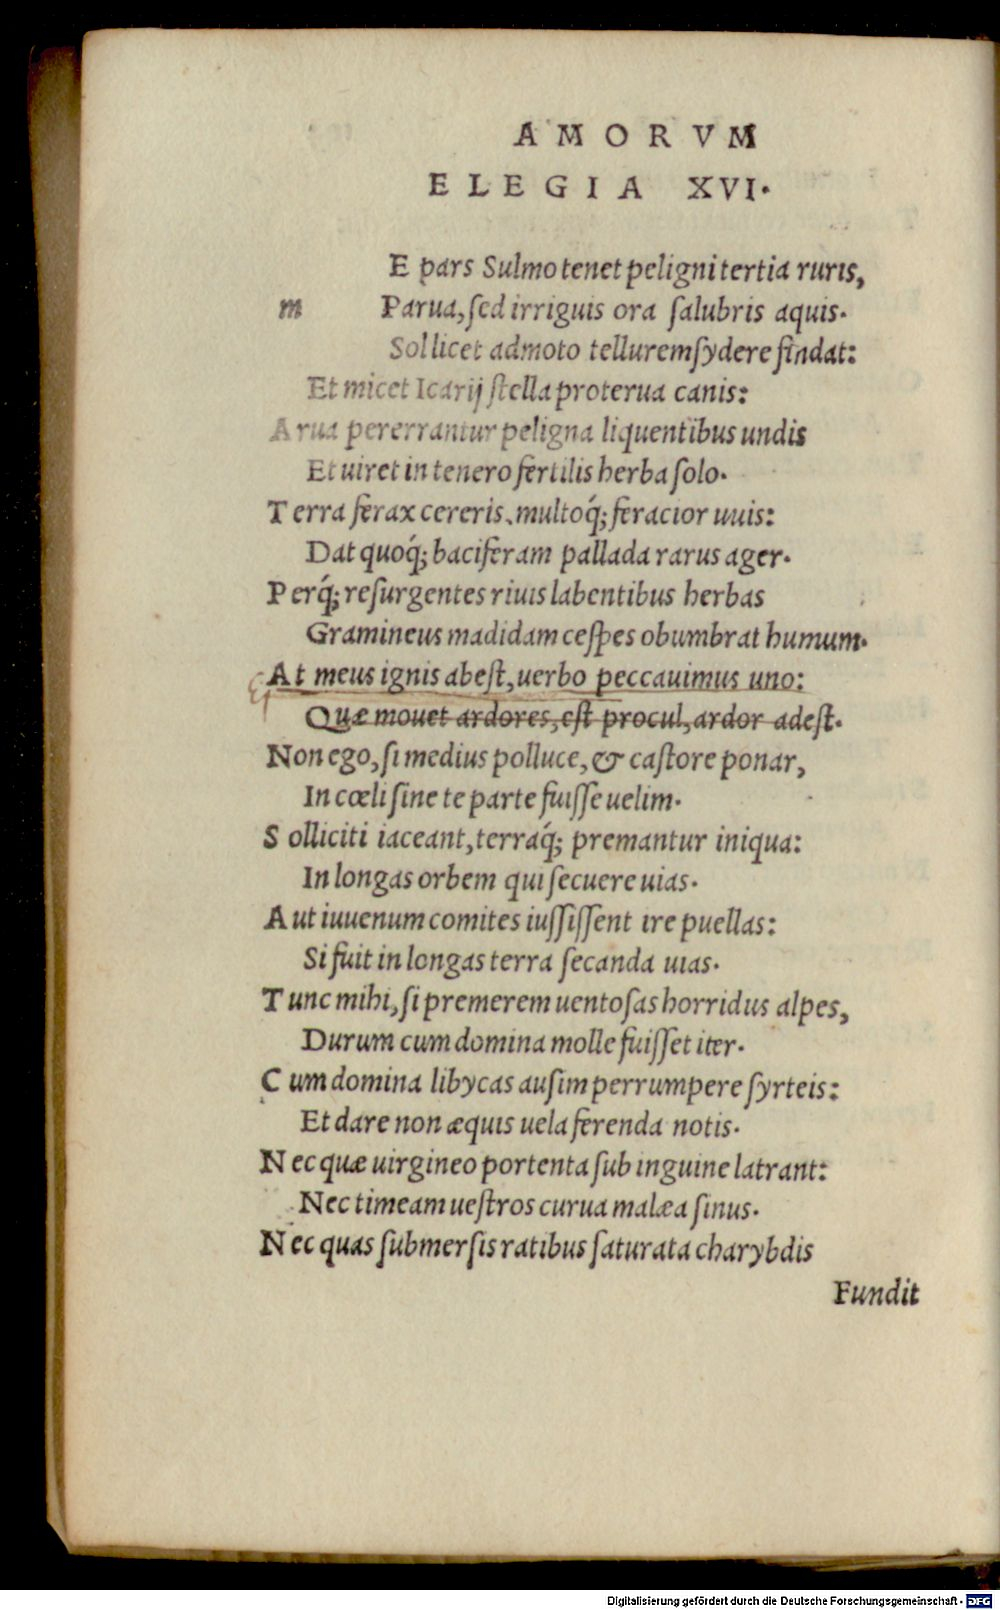 AMORVM
ELEGIA XVI.
E pars Sulmo tenet peligni tertia ruris,
m Parua, sed irriguis ora ſalubris aquis.
Sol licet admoto tellurem ſydere findat:
Et micet Icarij ſtella proterua canis:
Arua pererrantur peligna liquentibus undis
Et uiret in tenero fertilis herba ſolo.
Terra ferax cereris, multoq́; feracior uuis:
Dat quoq́; baciferam pallada rarus ager.
Perq́; reſurgentes riuis labentibus herbas
Gramineus madidam ceſpes obumbrat humum.
At meus ignis abeſt, uerbo peccauimus uno:
Quæ mouet ardores, eſt procul, ardor adeſt.
Non ego, ſi medius polluce, & caſtore ponar,
In cœli ſine te parte fuiſſe uelim.
Solliciti iaceant, terraq́; premantur iniqua:
In longas orbem qui ſecuere uias.
Aut iuuenum comites iuſſiſſent ire puellas:
Si fuit in longas terra ſecanda uias.
Tunc mihi, ſi premerem uentoſas horridus alpes,
Durum cum domina molle fuiſſet iter.
Cum domina libycas auſim perrumpere ſyrteis:
Et dare non æquis uela ferenda notis.
Nec quæ uirgineo portenta ſub inguine latrant:
Nec timeam ueſtros curua malæa ſinus.
Nec quas ſubmerſis ratibus ſaturata charybdis
Fundit
Digitalisierung gefördert durch die Deutsche Forschungsgemeinschaft - DFG